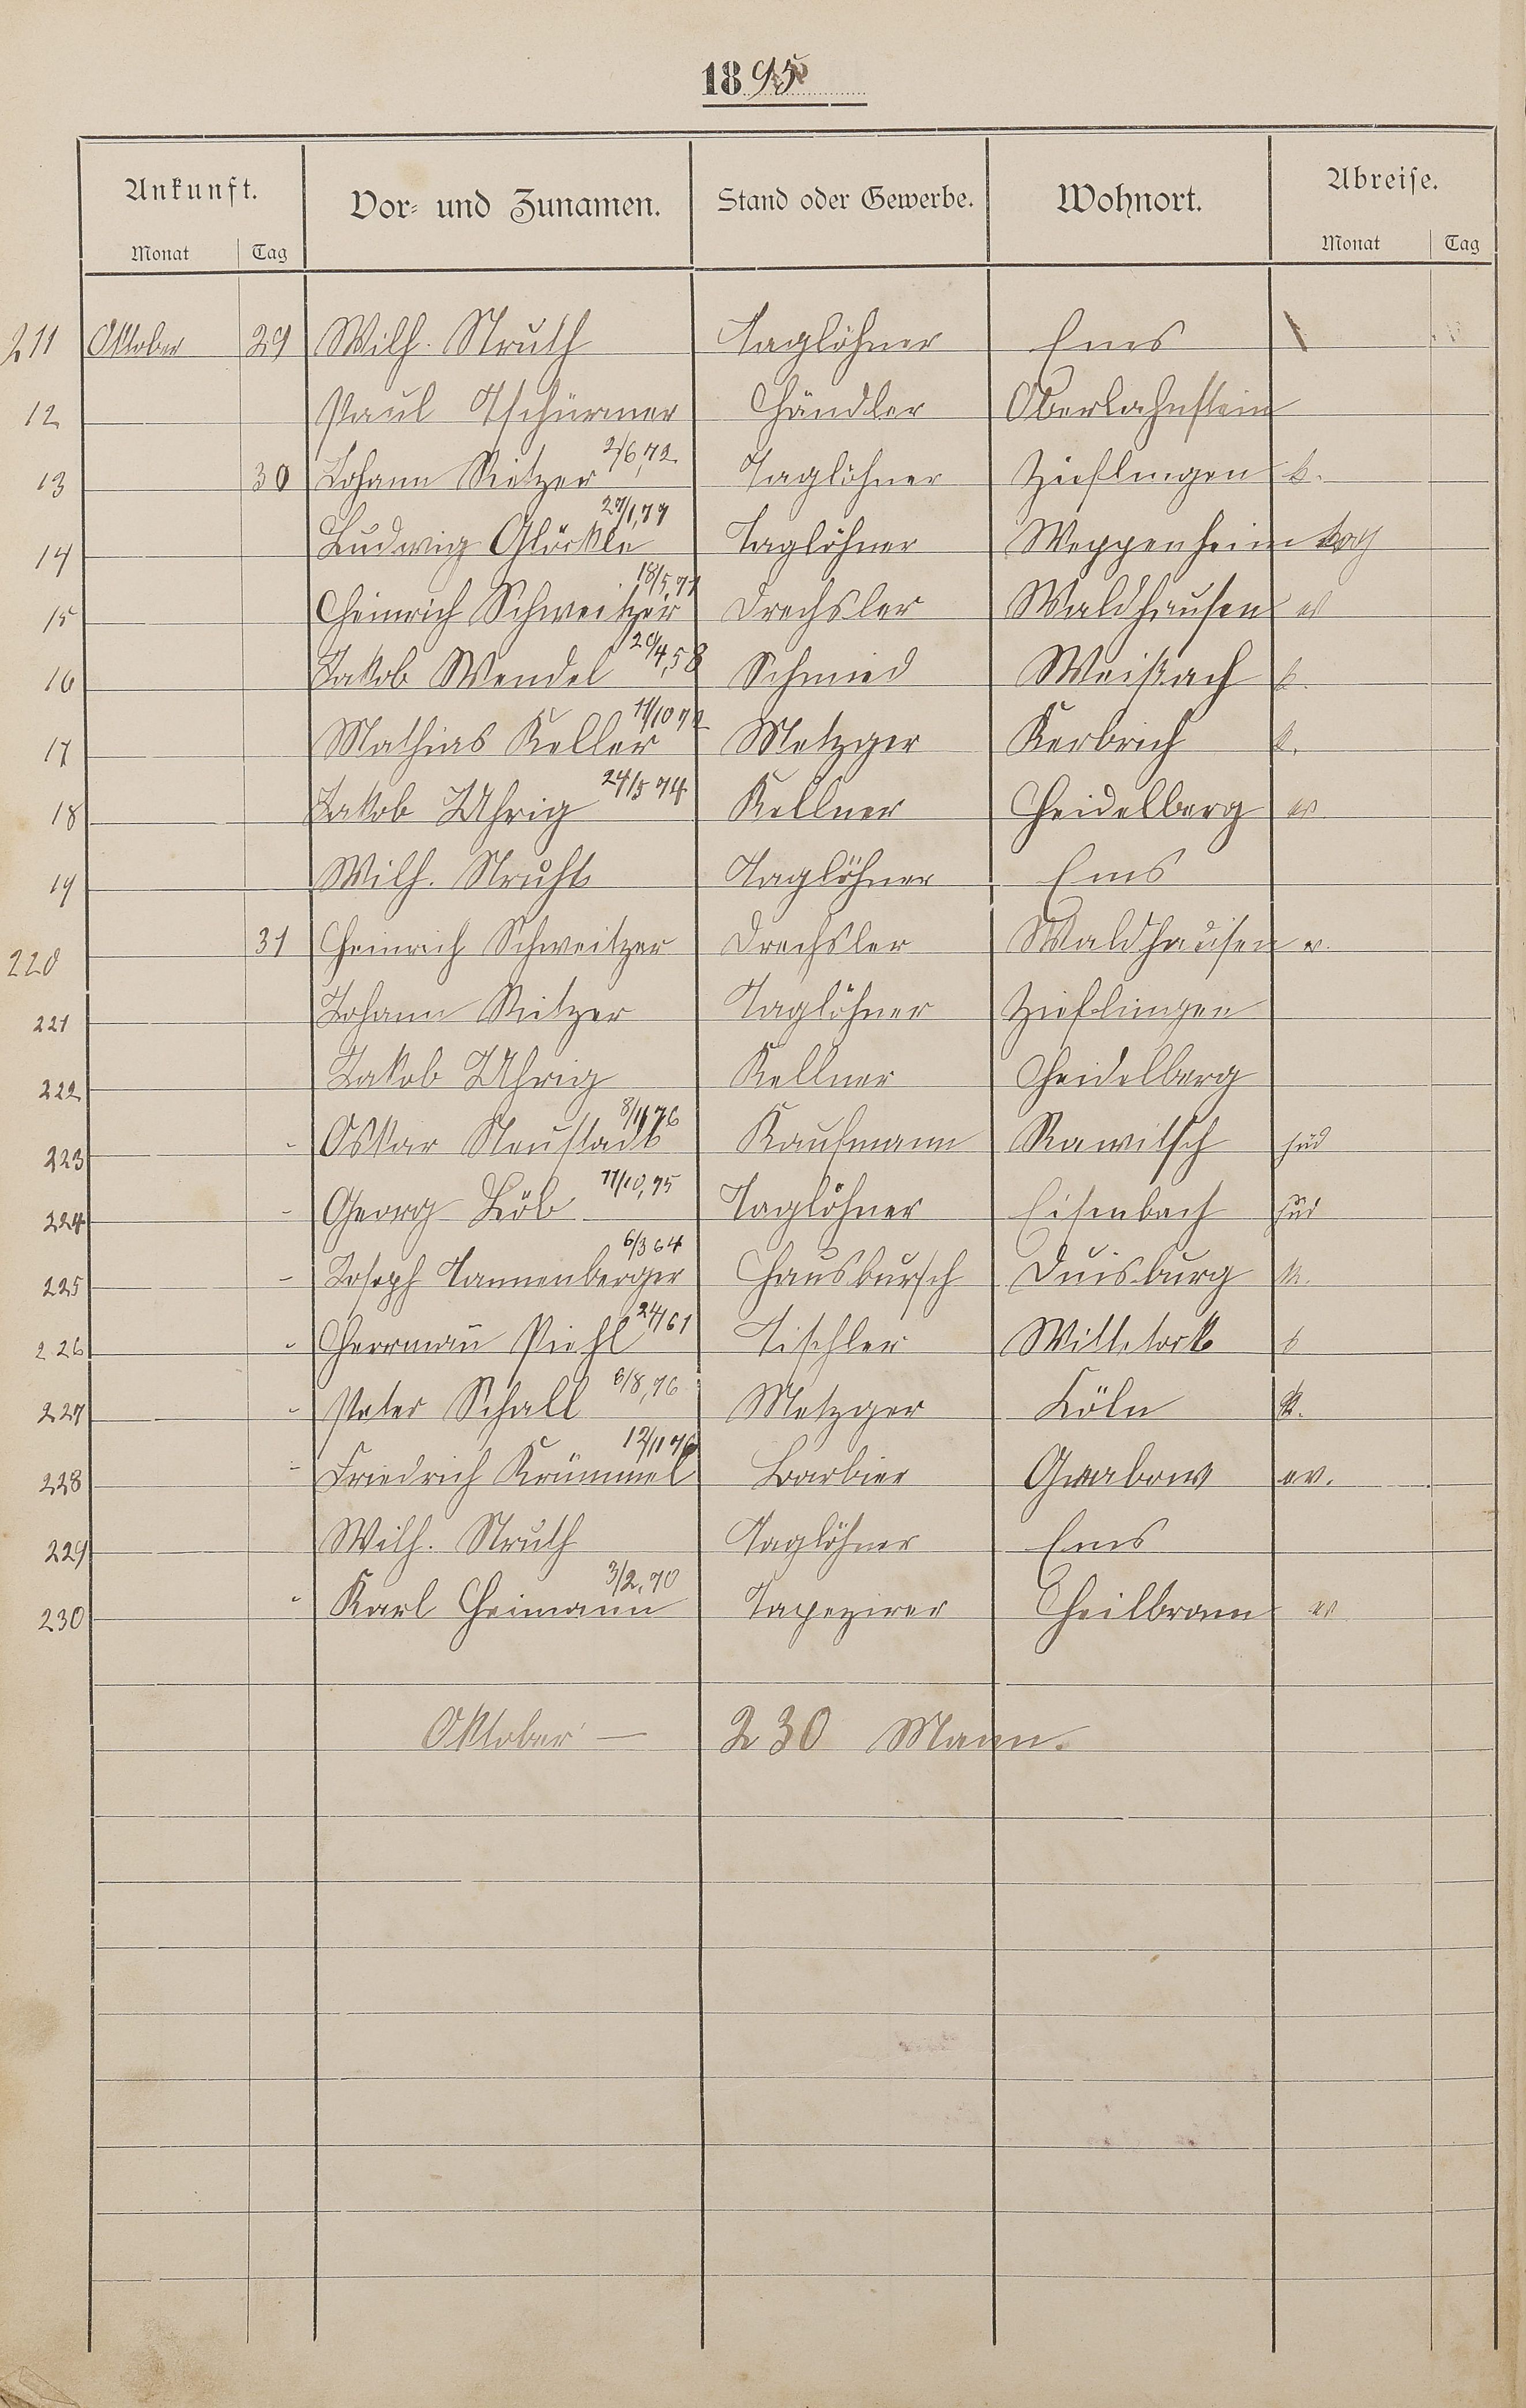 1895
Ankunft. Vor- und Zunamen. Stand oder Gewerbe. Wohnort. Abreise.
Monat Tag Monat Tag
211 Oktober 29 Wilh. Struth Taglöhner Ems
12 Paul Tschürmer Händler Oberlahnstein
13 30 Johann Ritzer 2/6,72 Taglöhner Zieflingen k.
14 Ludwig Glöckle 27/1,77 Taglöhner Weppenheim
15 Heinrich Schweitzer 18/5,71 Drechsler Waldhausen ev
16 Jakob Wendel 20/4,58 Schmied Weissach k.
17 Mathias Keller 11/10 72 Metzger Kerbrich k.
18 Jakob Uhrig 24/5 74 Kellner Heidelberg ev
19 Wilh. Struht Taglöhner Ems
220 31 Heinrich Schweitzer Drechsler Waldhausen
221 Johann Ritzer Taglöhner Zieflingen
222 Jakob Uhrig Kellner Heidelberg
223 - Oskar Neustadt 8/11 76 Kaufmann Rawitsch jüd
224 - Georg Löb 11/10,75 Taglöhner Eisenbach jüd
225 - Joseph Tannenberger 6/3 64 Hausbursch Duisburg k.
226 - Herrmann Piehl 24/61 Tischler Wittstock
227 - Peter Schall 6/8,76 Metzger Köln k.
228 - Friedrich Krümmel 12/11 76 Barbier Grabow ev.
229 Wilh. Struth Taglöhner Ems
230 - Karl Heimann 3/2,70 Tapezirer Heilbronn ev
Oktober — 230 Mann.